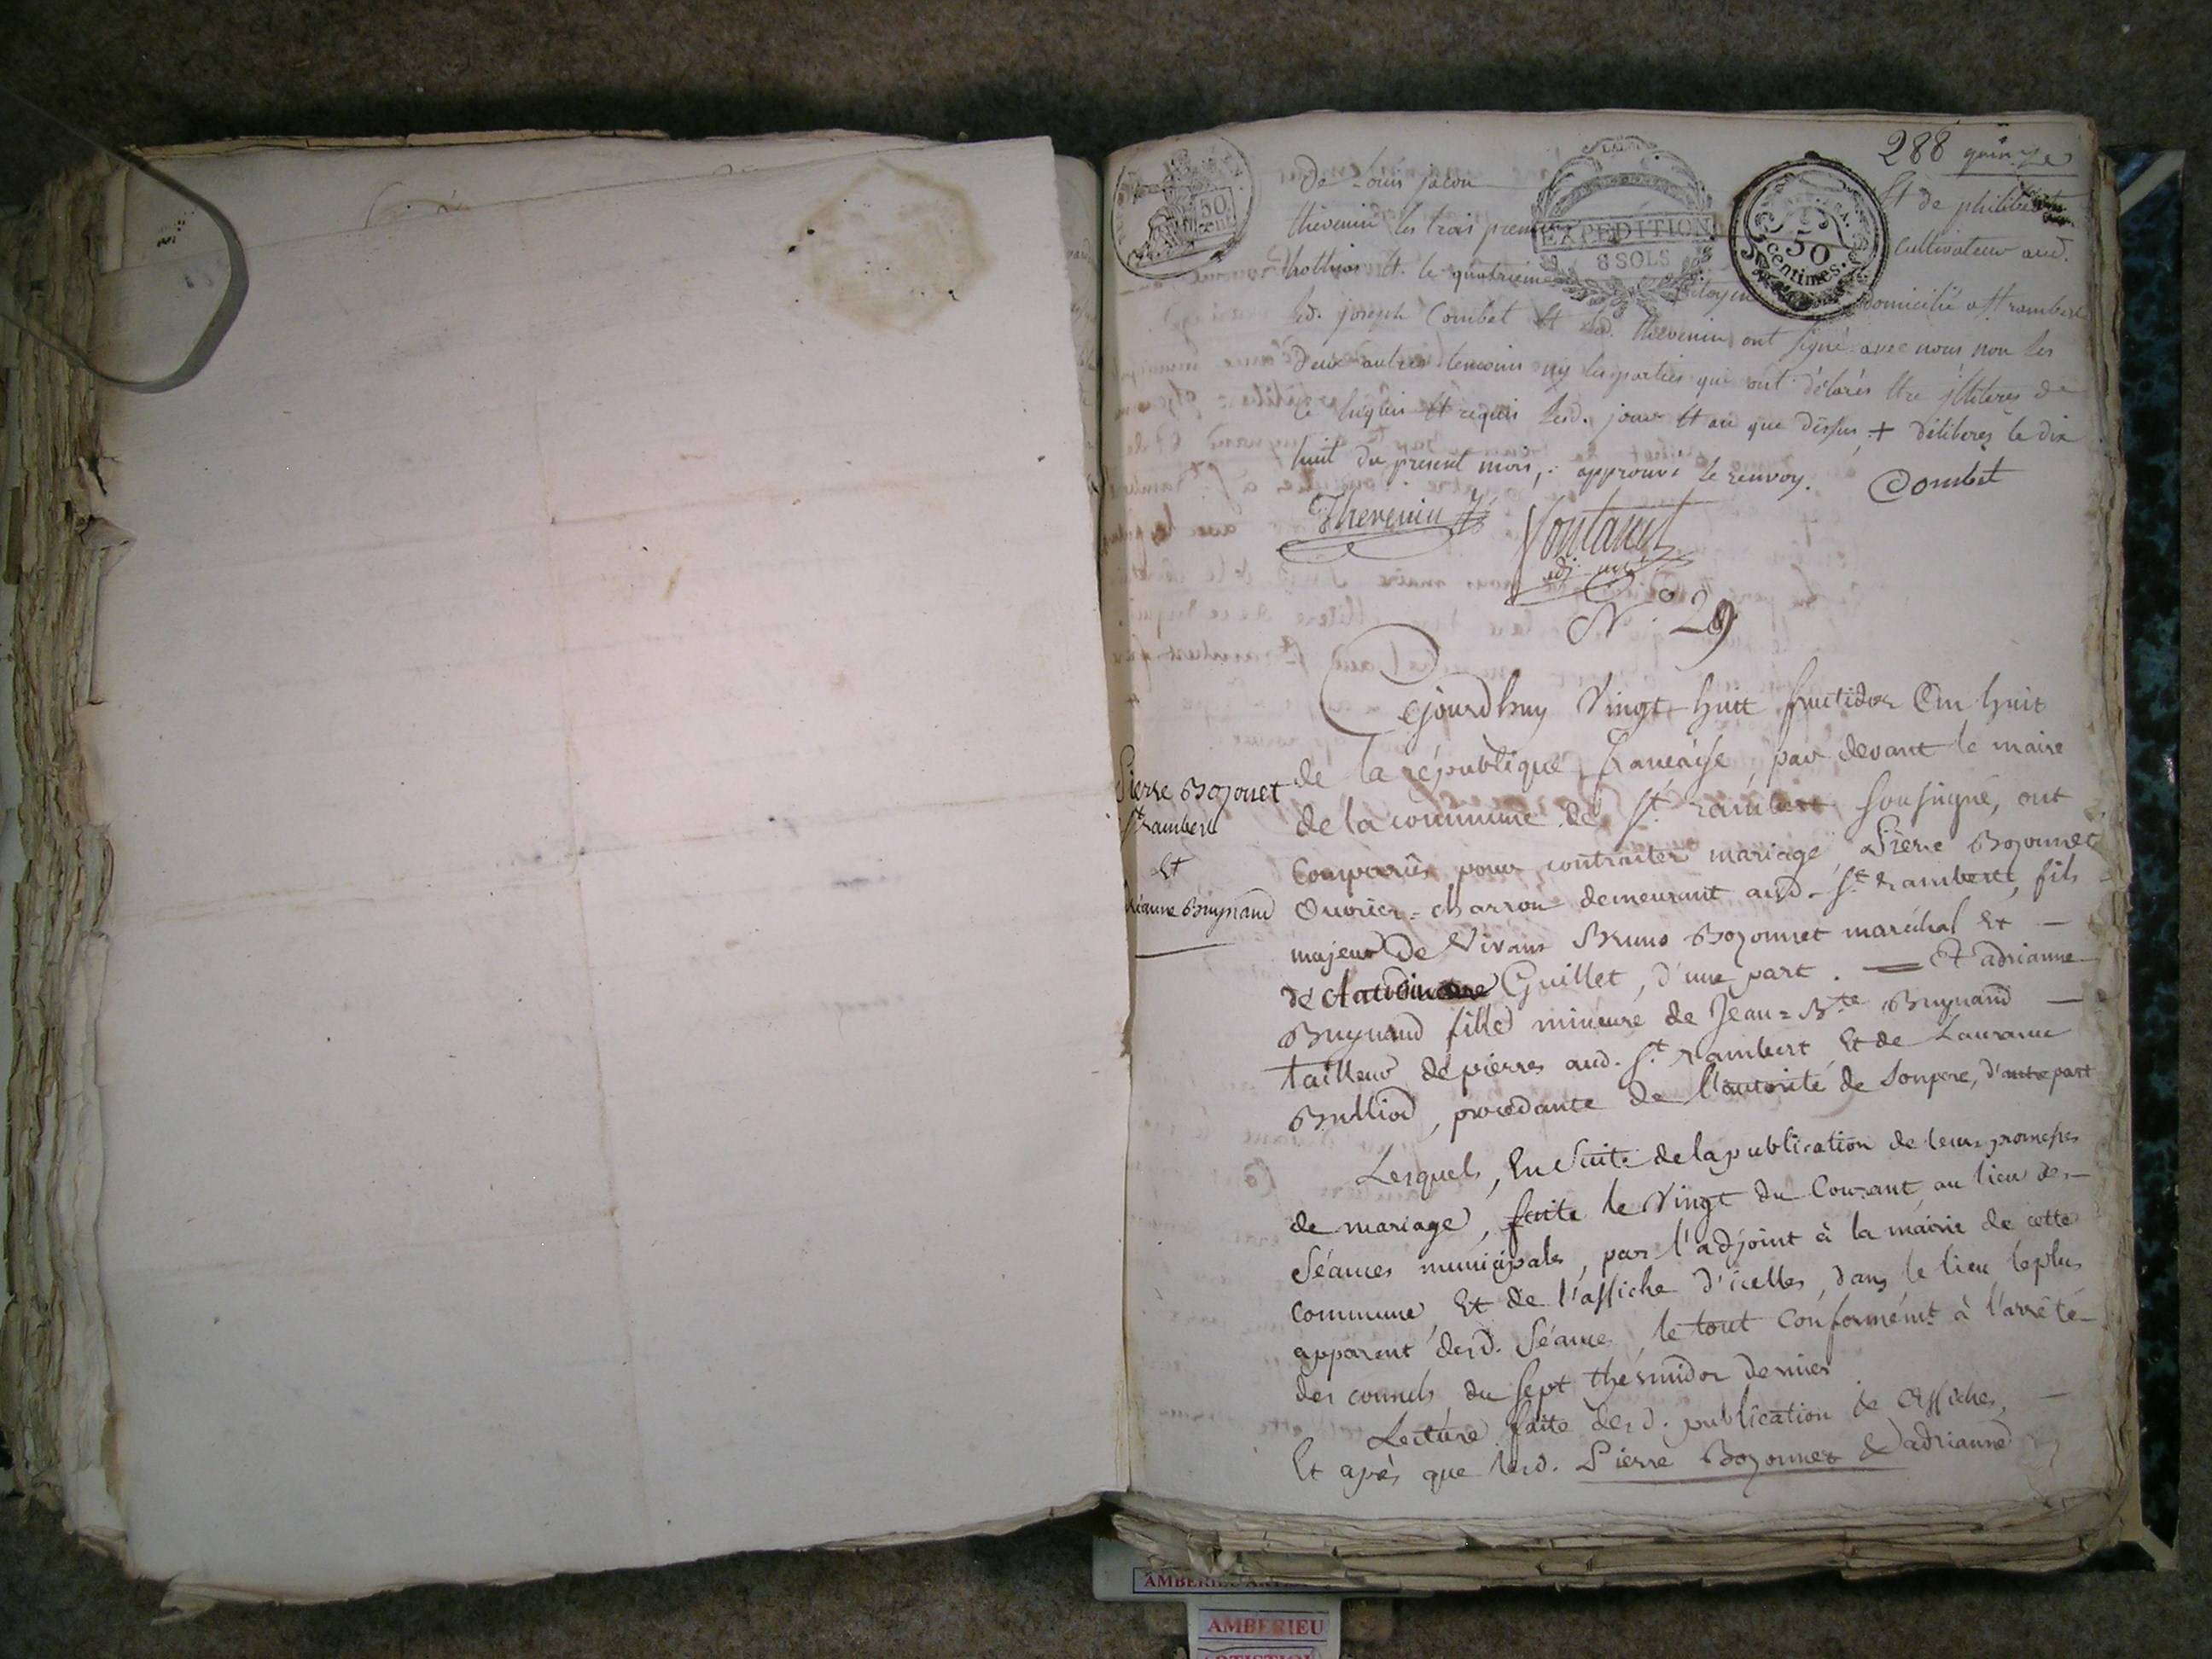 288 quinze
50 cent
EXPEDITION
8 SOLS
50
Centimes.
de Louis jacon Et de philibert
thevenin les trois premiers Cultivateurs aud.
Et le quatrieme citoyen domicilié a st rambert
Led. joseph Combet Et led. thevenin ont signé avec nous non les
deux autres temoins ny les parties qui ont délarés Etre jlliteres de
ce Enquis Et requis Lesd. jour Et an que dessus + déliberés le dix
huit du present mois, approuvé le renvoy. Combet
Thevenin
N.° 29
Cejourdhuy Vingt-huit fructidor an huit
de la république francaise, par devant le maire
de la commune de St. rambert soussigné, ont
Comparus pour contracter mariage, Pierre Bozonnet
Ouvrier-charron demeurant aud. St. Rambert, fils
majeur de Vivans Bruno Bozonnet maréchal Et
de Guillet, d'une part. Et adrianne
Bugnand fille mineure de Jean-Bte. Bugnand
tailleur de pierres aud. St. rambert Et de Laurance
Brilliod, procedante de l'autorité de son pere, d'autre part
Lesquels, En suite de la publication de leurs promesses
de mariage, faite le Vingt du Courant au lieu des
Séances municipales, par l'adjoint à la mairie de cette
commune, Et de l'affiche d'icelles, dans le lieu le plus
apparent desd. Séance, le tout Conformémt. à l'arrêté
des consuls, du sept thermidor dernier
Lecture faite desd. publication & affiches,
Et après que lesd. Pierre Bozonnet & adrianne
Pierre Bozonet
St Rambert
Et
Brignand
AMBERIEU